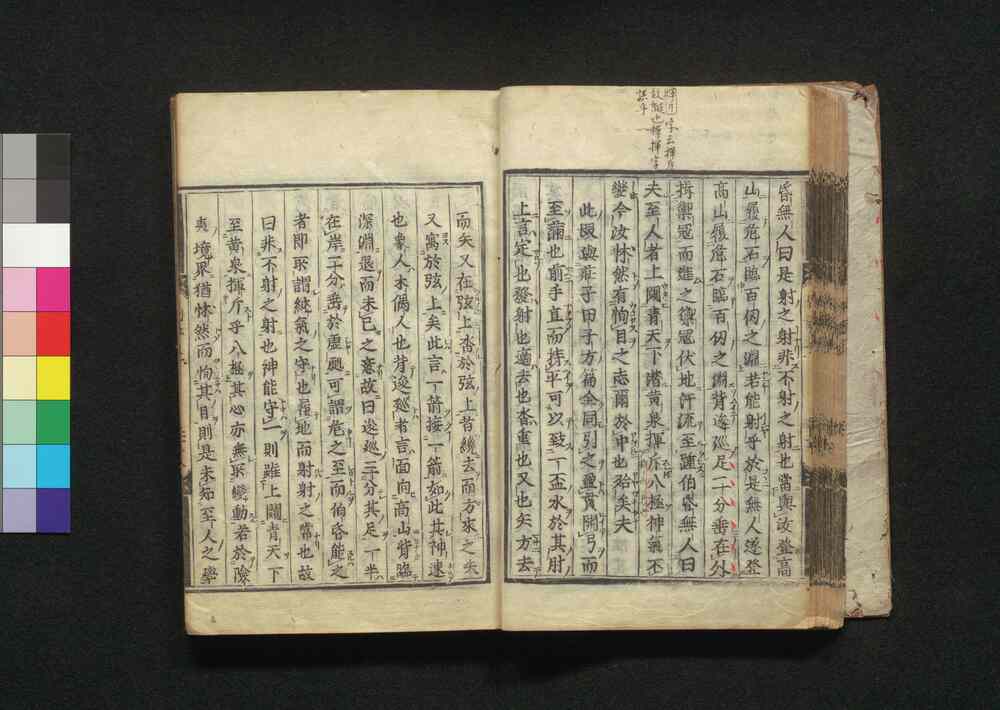 揮斥字云揮斥
放縱也揮揮字
誤乎
昏無人曰是射之射非不射之射也當與汝登高
山履危石臨百仞之淵若能射乎於是無人遂登
高山履危石臨百仞之淵背逡巡足二分垂在外
揖禦冠而進之禦冠伏地汗流至踵伯昏無人曰
夫至人者上闚青天下潛黃泉揮斥八極神氣不
變今汝怵然有恂目之志爾於中也殆矣夫
此段與莊子田子方篇全同引之盈貫開弓而
至滿也前手直而抔平可以致一盃水於其肘
上言定也發射也適去也沓重也又也矢方去
而矢又在弦上沓於弦上者纔去而方來之矢
又寓放弦上矣此言一箭接一箭如此其神速
也象人木偶人也背逡巡者言面向高山背臨
深淵退而未已之意故曰逡巡三分其足一半
在岸二分垂於虛處可謂危之至而伯昏能之
者即所謂純氣之守也履地而射射之常也故
曰非不射之射也神能守一則雖上闚青天下
至黃泉揮斥乎八極其心亦無所變動若於險
夷境界猶怵然而恂其目則是未知至人之學